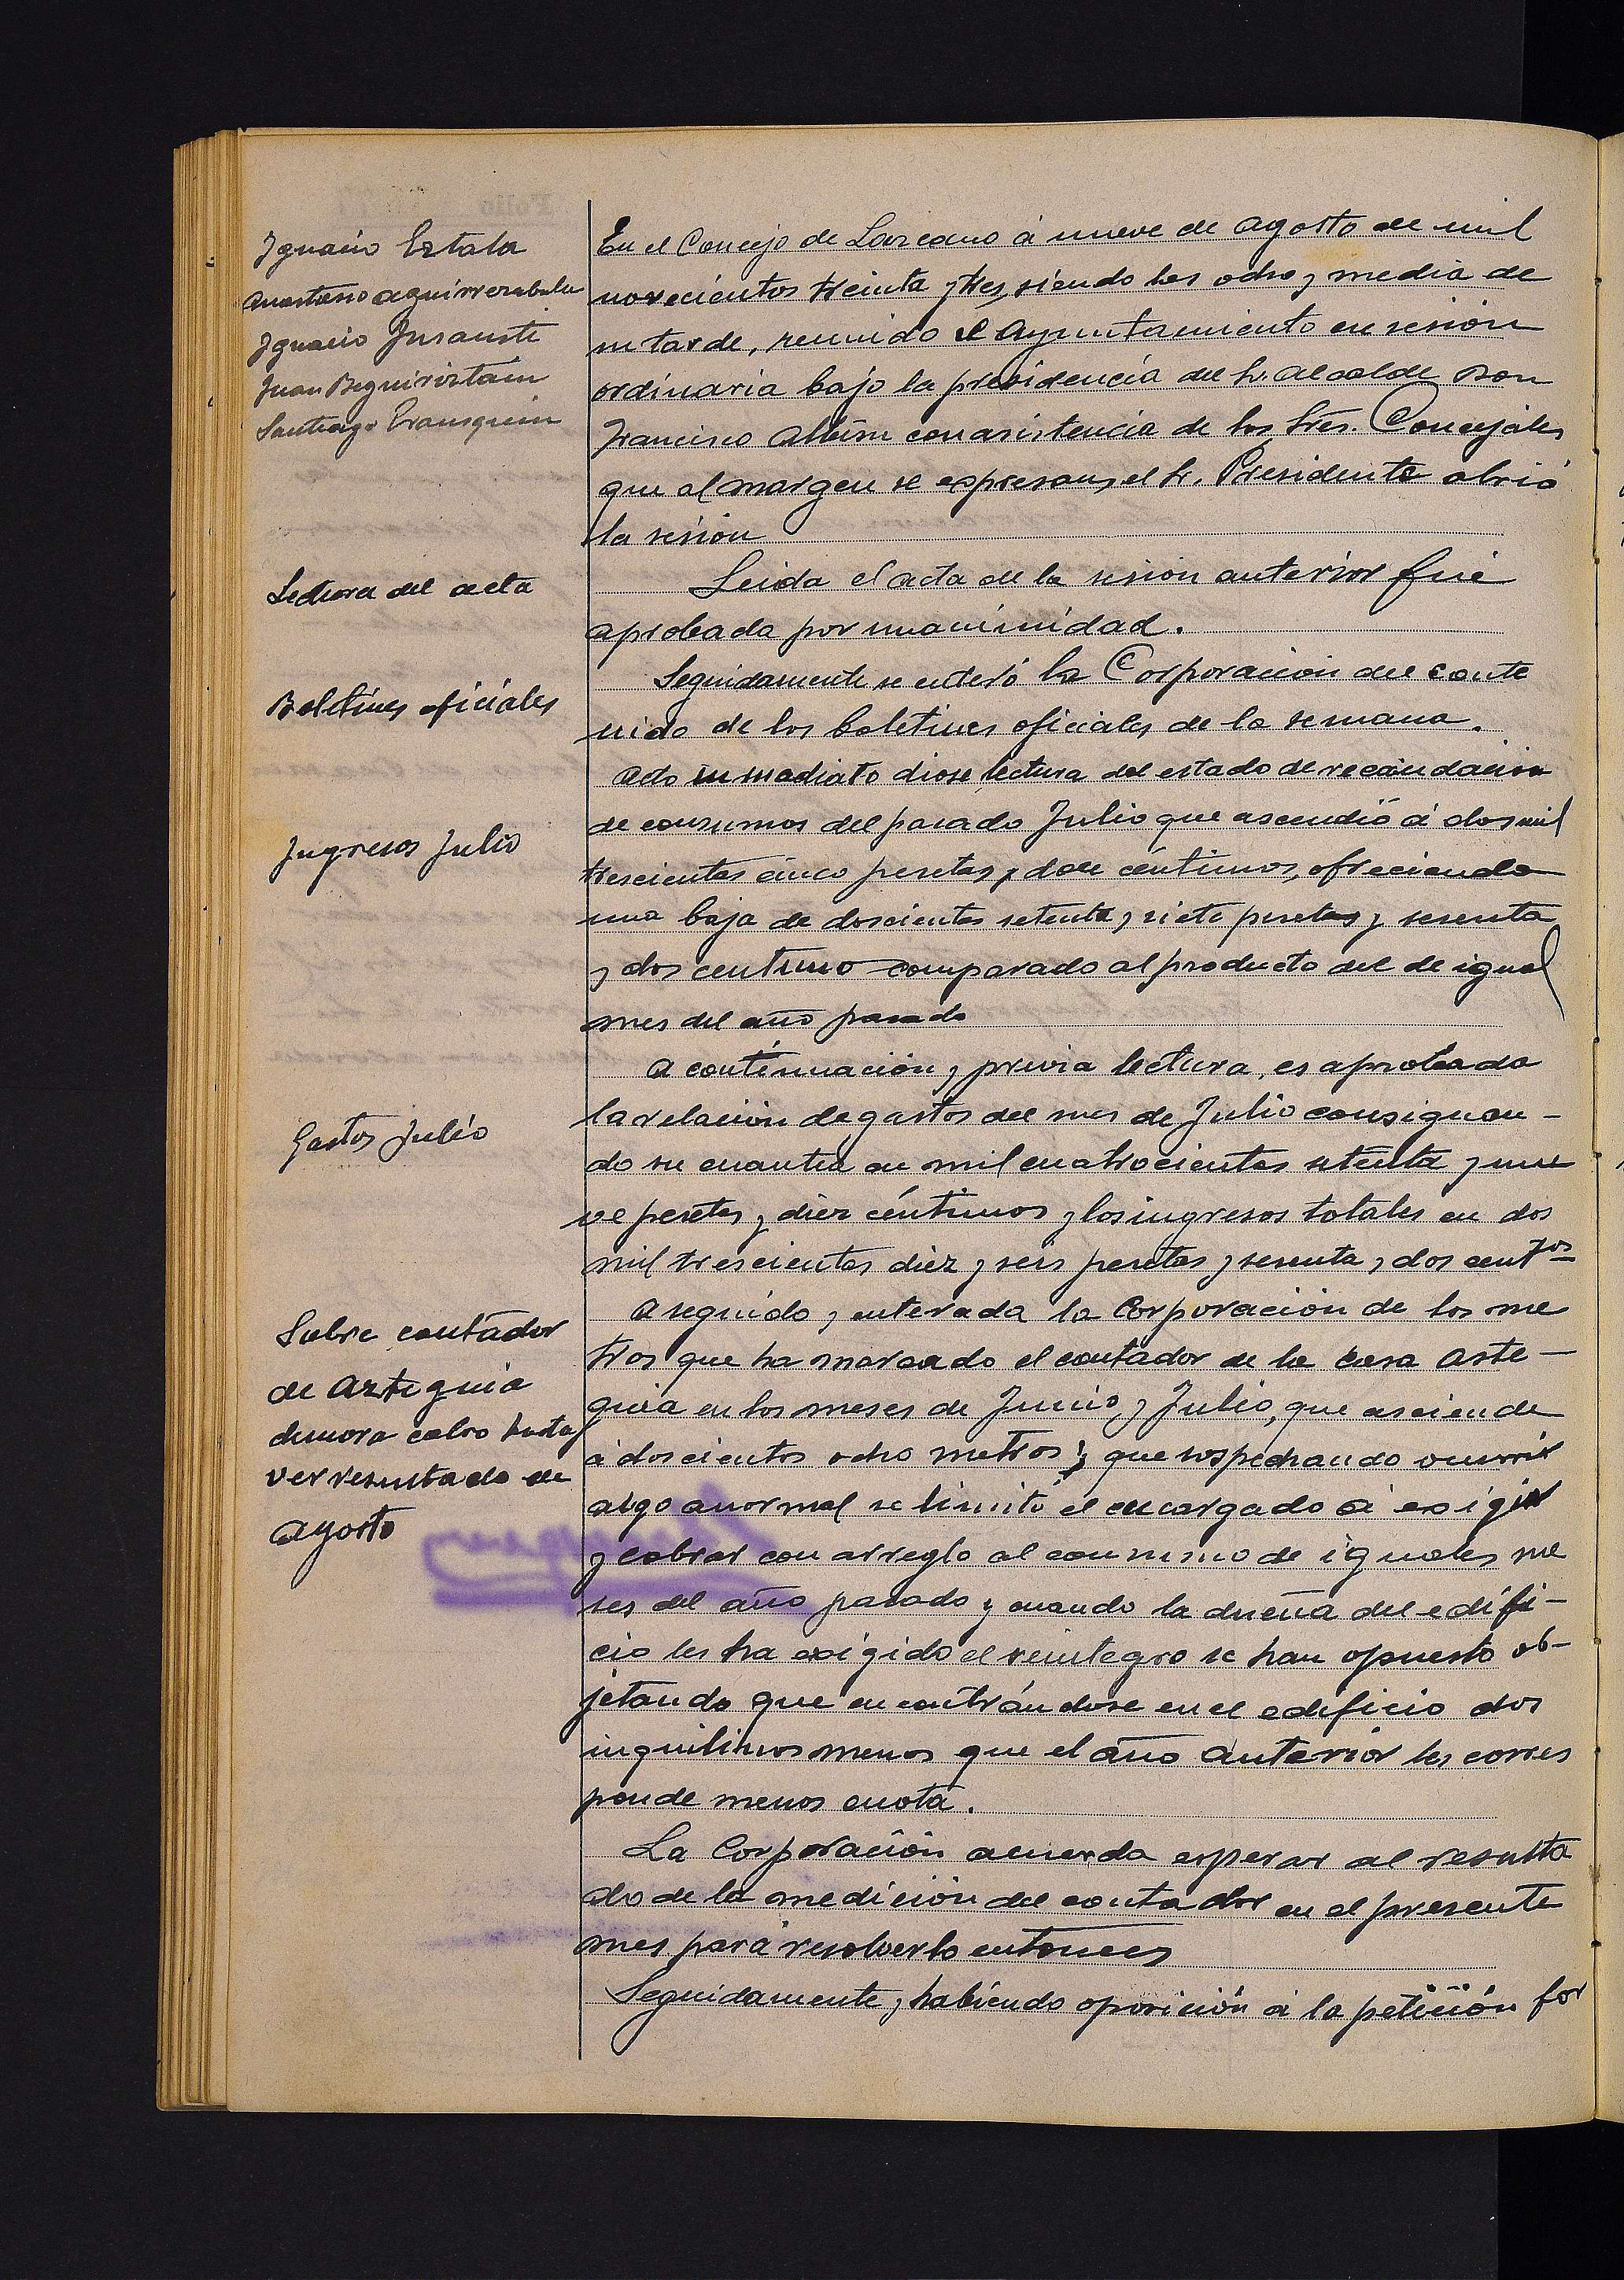 Ignacio Eztala
Anastasio Aguirrezabala
Ignacio Insausti
Juan Beguiristain
Santiago Erausquin
En el Concejo de Lazcano á nueve de Agosto de mil
novecientos treinta y tres, siendo las ocho y media de
su tarde, reunido el Ayuntamiento en sesión
ordinaria bajo la presidencia del Sr. Alcalde Don
Francisco Albisu con asistencia de los Sres. Concejales
que al margen se expresan, el Sr. Presidente abrió
la sesión
Lectura del acta
Leida el acta de la sesion anterior fué
aprobada por unanimidad.
Boletines oficiales
Seguidamente se enteró la Corporación del conte
nido de los boletines oficiales de la semana.
Ingresos Julio
Acto inmediato diose lectura del estado de recaudación
de consumos del pasado Julio que ascendió á dos mil
trescientas cinco pesetas y doce céntimos, ofreciendo
una baja de doscientas setenta y siete pesetas y sesenta
y dos centimo comparado al producto del de igual
mes del año pasado
Gastos Julio
A continuación y previa lectura, es aprobada
la relación de gastos del mes de Julio consignan-
do su cuantia en mil cuatrocientas setenta y nue
ve pesetas y diez céntimos y los ingresos totales en dos
mil trescientas diez y seis pesetas y sesenta y dos centmos
Sobre contador
de Arteguia
demora cobro hasta
ver resultado de
Agosto
A seguido y enterada la Corporación de los me
tros que ha marcado el contador de la casa Arte-
guia en los meses de Junio y Julio, que asciende
á doscientos ocho metros y que sospechando ocurrir
algo anormal se limitó el encargado á exigir
y cobrar con arreglo al consumo de iguales me
ses del año pasado y cuando la dueña del edifi-
cio les ha exigido el reintegro se han opuesto ob-
jetando que encontrándose en el edificio dos
inquilinos menos que el año anterior les corres
ponde menos cuota.
La Corporación acuerda esperar al resulta
do de la medición del contador en el presente
mes para resolverlo entonces
Seguidamente, habiendo oposición á la petición for